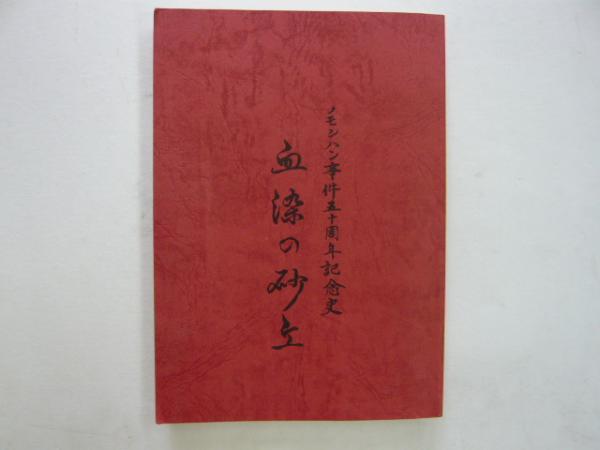 ノモンハン事件五十周年記念史
血染の砂丘